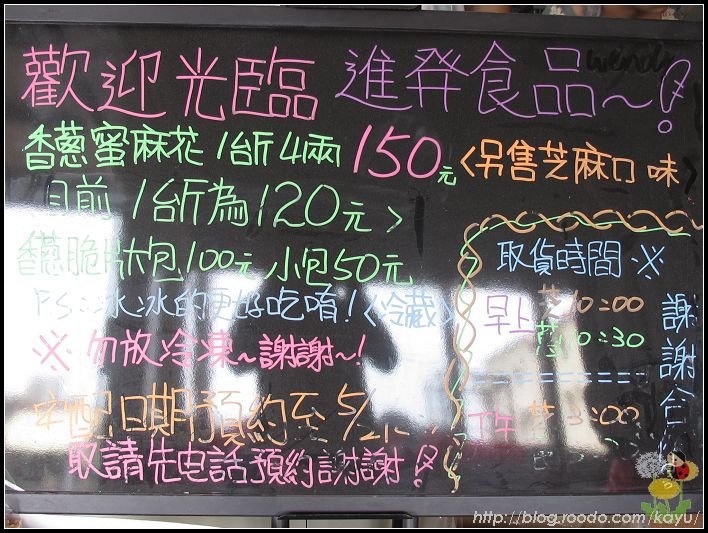 歡迎光臨 進發食品~!
wendy
香蔥蜜麻花 1台斤4兩 150元<另售芝麻口味>
目前 1台斤為120元>
香蔥脆片大包100元 小包50元
P.S:冰冰的更好吃唷!<冷藏>
※勿放冷凍~謝謝~!
宅配日期預約至 5/21
取請先电話預約謝謝!
取貨時間※
早上 芝10:00
蔥10:30
下午 芝3:00
謝謝合
http://blog.roodo.com/kayu/